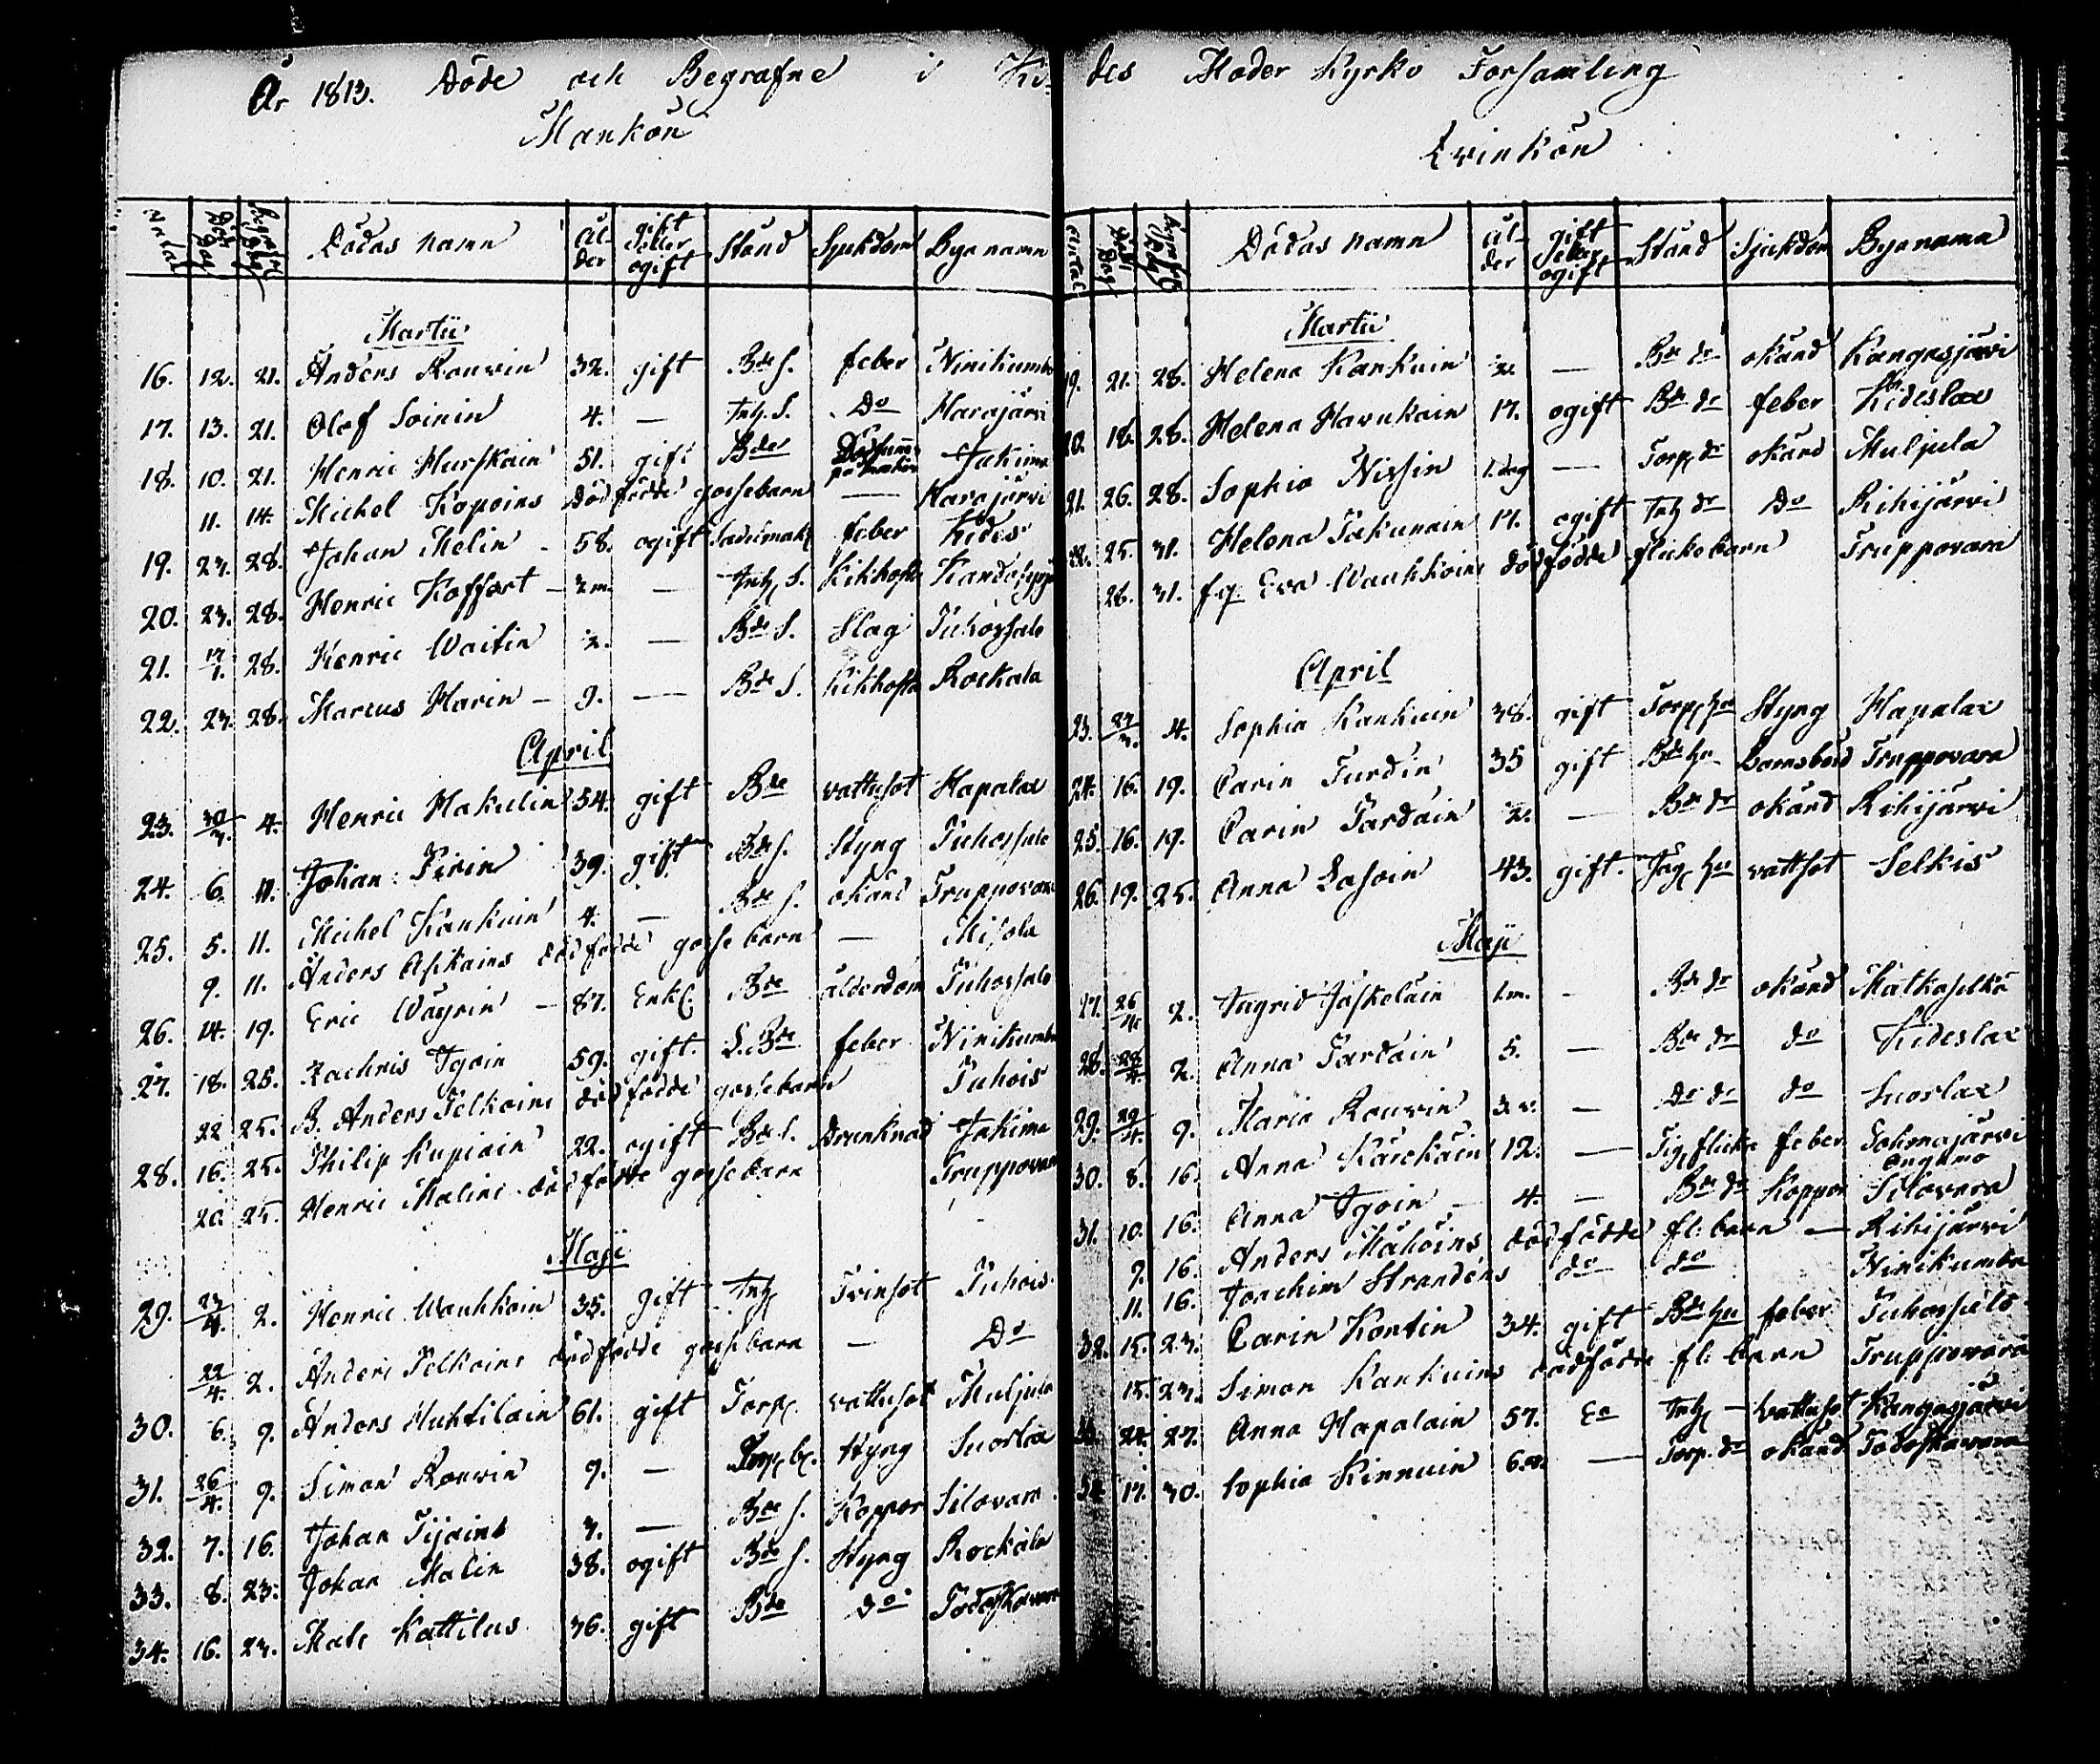 År 1813. Döde och Begrafne i Ki-
Mankön
N:o tal Död Dag Begrafn: Dag Dödas namn Ål-der gift eller ogift Stånd Sjukdom Byn namn
Martii
16. 12. 21. Anders Rouvin 32. gift Bde S. feber Ninikumbu
17. 13. 21. Olof Soinin 4. — Inh. S. Do Harajärvi
18. 10. 21. Henric Hurskain 51. gift Bde Jakima
11. 14. Michel Kopoins dödfödde gossebarn — Harajärvi
19. 23. 28. Johan Melin 58. ogift Sadelmak feber Kides
20. 23. 28. Henric Koffert 2 m. — Inh. S. Kikhosta
21. 17/1. 28. Henric Waitin 2. — Bde S. Slag Puhossalo
22. 23. 28. Marcus Harin 9. — Bde S. Kikhosta Rockala
April
23. 30/3. 4. Henric Hakulin 54. gift Bde vattusot Hapalax
24. 6. 11. Johan Pirin 39. gift Bde S. Styng Puhossalo
25. 5. 11. Michel Kankuin 4. — Bde S. okänd Truppovara
9. 11. Anders Asikains dödfödde gossebarn — Misola
26. 14. 19. Eric Wäyrin 87. Enkl. Bde ålderdom Puhossalo
27. 18. 25. Zachris Igoin 59. gift. S. Bde feber Ninikumbu
22 25. B. Anders Pelkoins dödfödde gossebarn Puhois
28. 16. 25. Philip Kupiain 22. ogift Bde S. Drunknad Jakima
20 25. Henric Malins dödfödde gossebarn Truppovara
Maji
29. 23/4. 2. Henric Wauhkoin 35. gift Inh. Tvinsot Puhois
22/4. 2. Anders Pelkoins dödfödde gossebarn — Do
30. 6. 9. Anders Huhtilain 61. gift Torp. vattusot Muljula
31. 26/4. 9. Simon Rouvin 9. — Styng Suorlax
32. 7. 16. Johan Tijains 3. — Bde S. Koppor Silovara
33. 8. 23. Johan Malin 38. ogift Bde S. Styng Rockala
34. 16. 23. Mats Kattilus 36. gift Bde do
des Moder Kyrko Forsamling
Qvinkön
Antal Död Dag Begrafn: Dag Dödas namn Ål-der gift eller ogift Stånd Sjukdom Byn namn
Martii
19. 21. 28. Helena Kankuin — Bde dr okänd Kangasjärvi
20. 18. 28. Helena Havukain 17. ogift Bde dr feber Kideslax
21. 26. 28. Sophia Nissin 1. dag — Torp dr okänd Muljula
22. 25. 31. Helena Pakunain 17. ogift Inh dr Do Rihijärvi
26. 31. fq. Eva Wauhkoins dödfödde flickebarn Truppovara
April
23. 27/3. 4. Sophia Kankuin 38. gift Torp hu Styng Hapalax
24. 16. 19. Carin Turdin 35 gift Bde hu Barnsbörd Truppovara
25. 16. 19. Carin Pardain — Bde dr okänd Rihijärvi
26. 19. 25. Anna Lasoin 43. gift. hu vattsot Selkis
Maji
27. 26/4 2. Ingrid Jäskelain 1 m. - Bde dr okänd Matkaselkä
28. 28/4. 2. Anna Pardain 5. — Bde dr do Kideslax
29. 29/4. 9. Maria Rouvin 3 v. — Do dr do Suorlax
30. 8. 16. Anna Käickäin 12. — Tig. flicka feber Tohmajärvi
31. 10. 16. Anna Igoin 4. — Bde dr Koppor Silovara
7. 16. Anders Mahoins dödfödde fl: barn — Rihijärvi
11. 16. Joachim Strandens do do Ninikumbu
32. 15. 23. Carin Kontin 34. gift Bde hu feber Puhossalo
15. 23. Simon Kankuins dödfödde fl: barn Truppovara
24. 27. Anna Hapalain 57. Ea Inh — vattusot Kangasjärvi
17. 30. Sophia Kinnuin — Torp. dr okänd